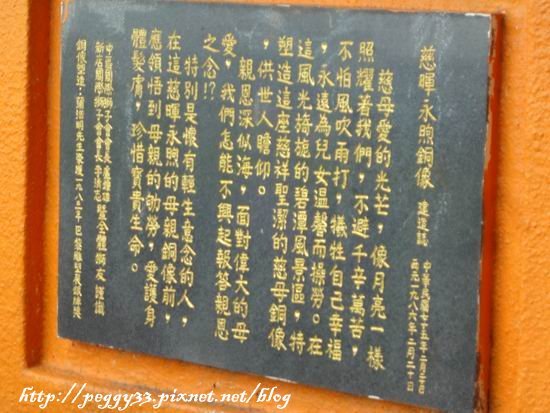 慈暉永煦銅像 建造誌
中華民國七十五年二月二十日
西元一九八六年二月二十日
慈母愛的光芒，像月亮一樣
照耀着我們，不避千辛萬苦，
不怕風吹雨打，犧牲自己幸福
，永遠為兒女溫馨而操勞。在
這風光旖旎的碧潭風景區，特
塑造這座慈祥聖潔的慈母銅像
，供世人瞻仰。
親恩深似海，面對偉大的母
愛，我們怎能不興起報答親恩
之念!?
特別是懷有輕生意念的人，
在這慈暉永煦的母親銅像前，
應領悟到母親的劬勞，愛護身
體髮膚，珍惜寶貴生命。
中區國際獅子會會長
新店國際獅子會會長李清志 暨全體獅友 謹識
銅像塑造：
先生榮獲一九八三年巴黎雕塑展銀牌獎
http://peggy33.pixnet.net/blog